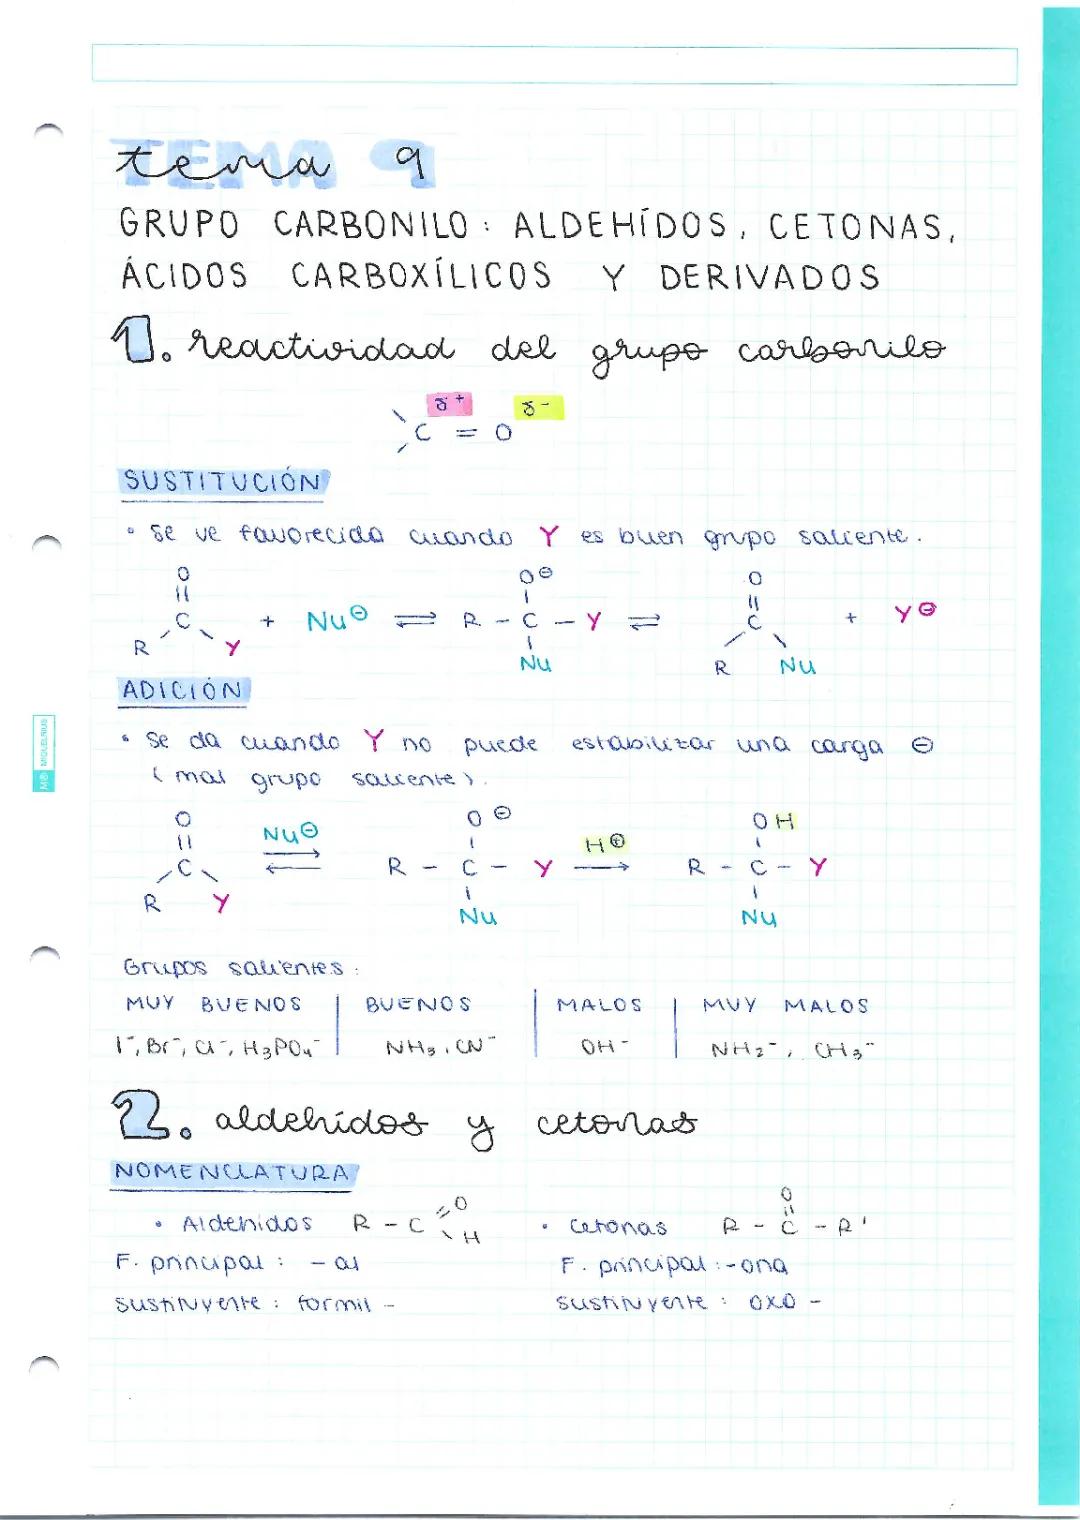 tema 9
GRUPO CARBONILO: ALDEHÍDOS, CETONAS,
ÁCIDOS CARBOXÍLICOS Y DERIVADOS
1. reactividad del grupo carbonilo
δ+ δ-
C = O
SUSTITUCIÓN
• Se ve favorecida cuando Y es buen grupo saliente.
O O⊖ O
R C Y + Nu⊖ ⇌ R - C - Y ⇌ R C Nu + Y⊖
Nu
ADICIÓN
• Se da cuando Y no puede estabilizar una carga ⊖
(mal grupo saliente).
O Nu⊖ O⊖ H⊕ OH
R C Y ⇌ R - C - Y → R - C - Y
Nu Nu
Grupos salientes:
MUY BUENOS | BUENOS | MALOS | MUY MALOS
I⁻, Br⁻, Cl⁻, H₃PO₄⁻ | NH₃, CN⁻ | OH⁻ | NH₂⁻, CH₃⁻
2. aldehídos y cetonas
NOMENCLATURA
• Aldehidos R - C =O H • Cetonas R - C - R'
O
F. principal: -al F. principal: -ona
sustituyente: formil- sustituyente: oxo-
M® MIQUELRIUS